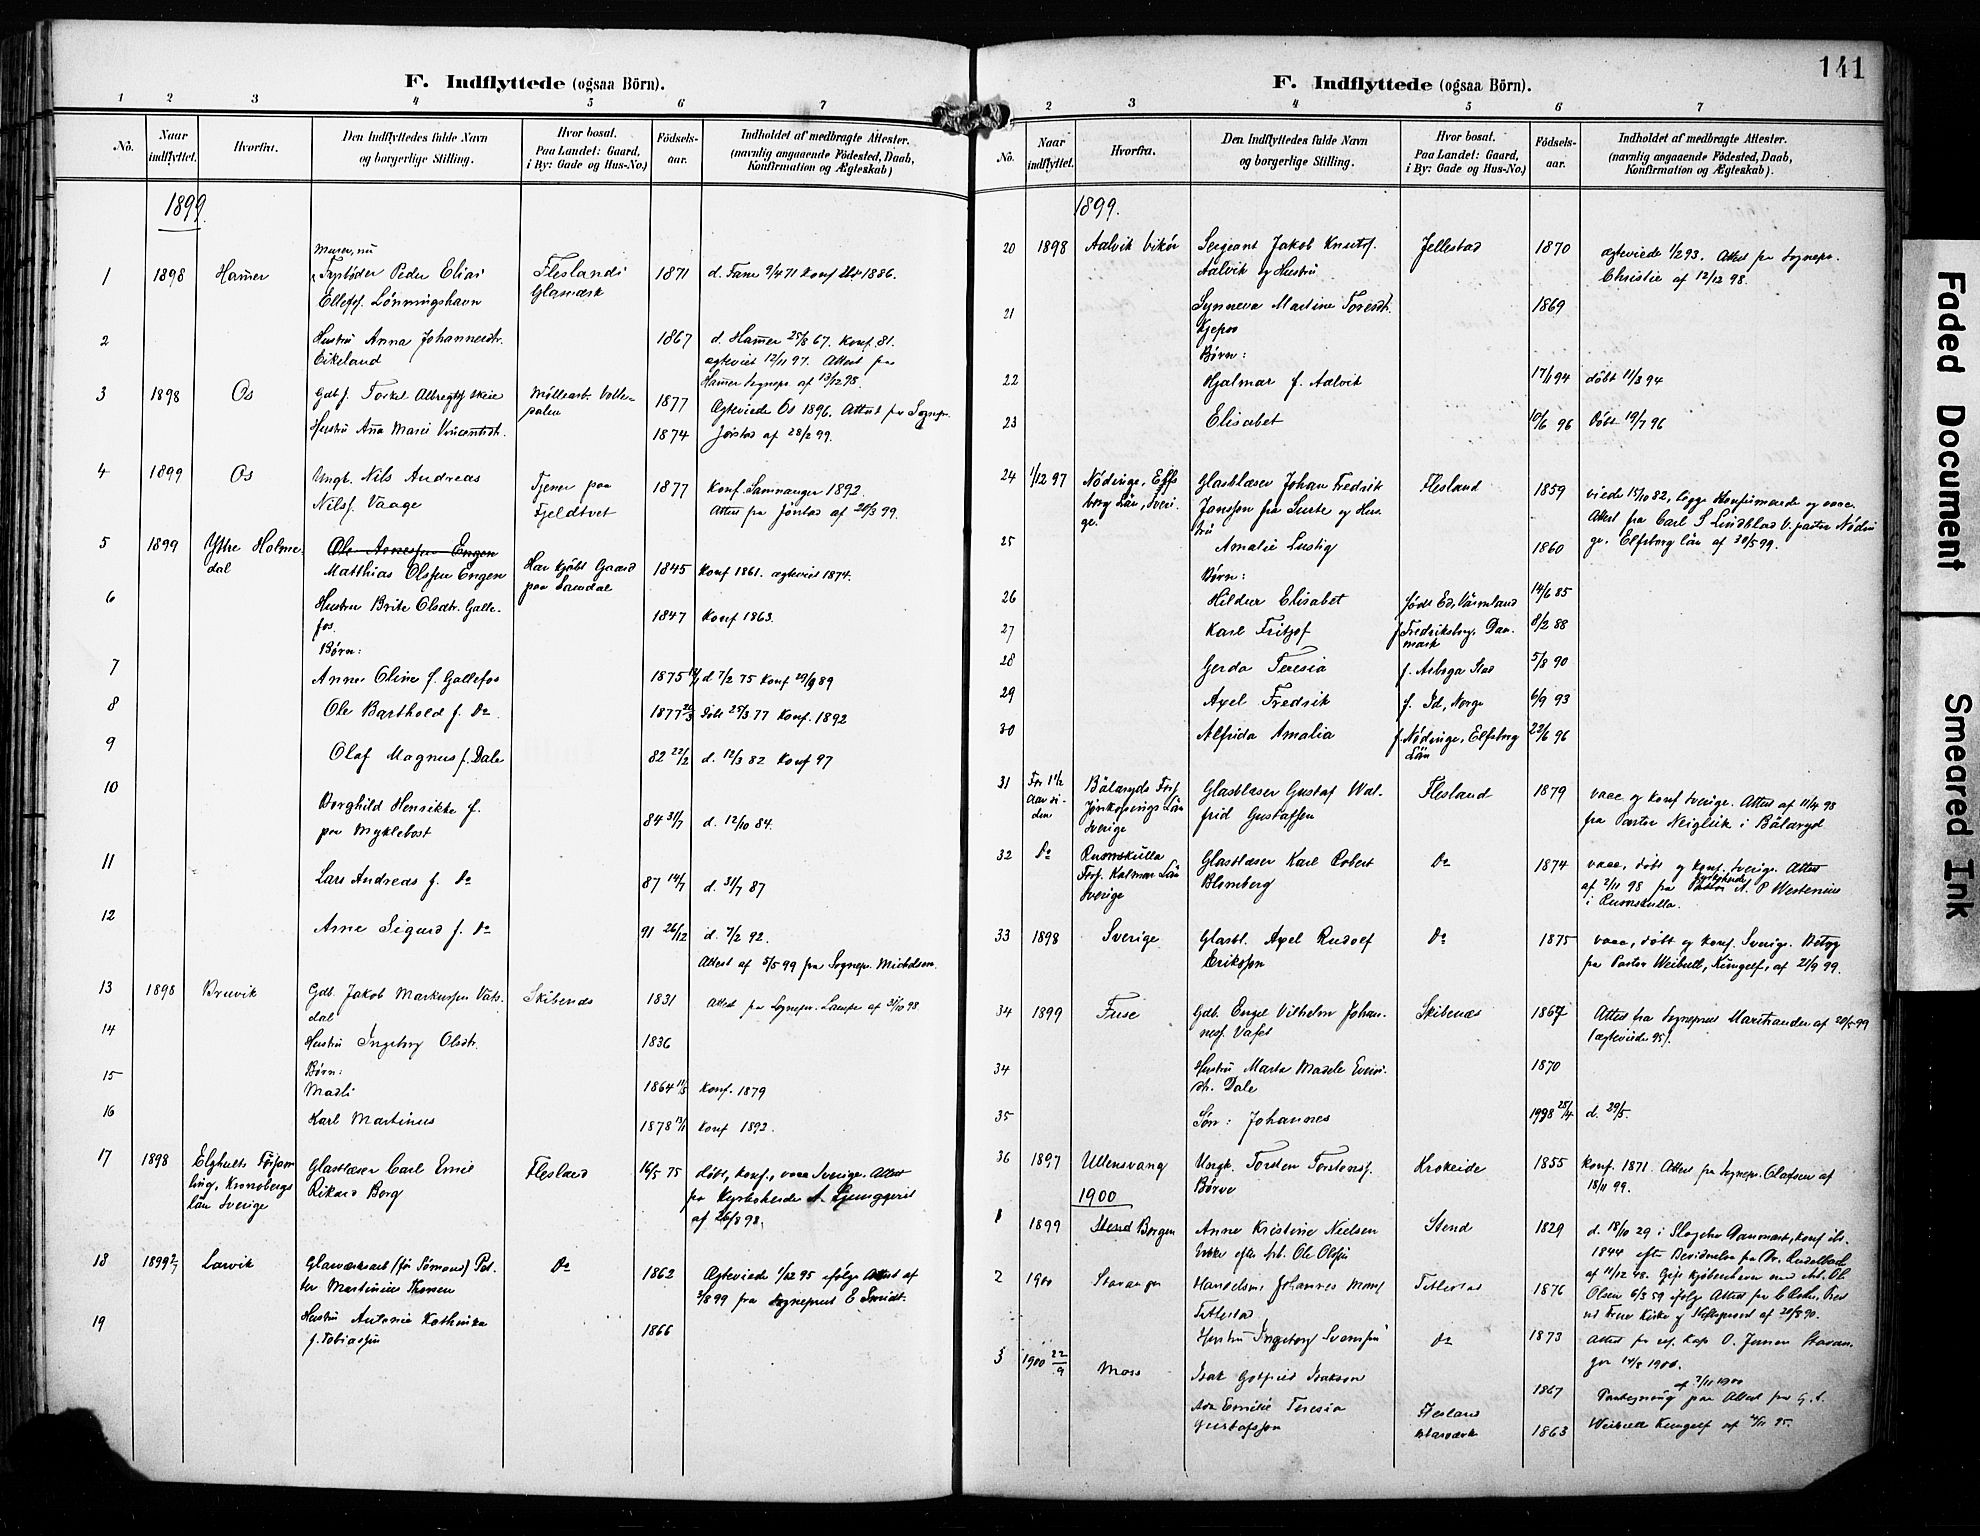 F. Indflyttede (ogsaa Börn).
1 2 3 4 5 6 7
No.
Naar indflyttet.
Hvorfra.
Den Indflyttedes fulde Navn
og borgerlige Stilling.
Hvor bosat.
Paa Landet: Gaard,
i By: Gade og Hus-No.)
Fødsels-
aar.
Indholdet af medbragte Attester.
(navnlig angaaende Fødested, Daab,
Konfirmation og Ægteskab)
1899.
1 1898 Hamer Peder Elias Fleslands 1871 d. Fane 9/4 71 Konf 1886.
Ellefs. Lönningshavn Glasværk
2 Hustru Anna Johannesdtr. 1867 d. Hamer 25/8 67. Konf. 81.
Eikeland ægteviet 12/11 97. Attest fra
Hamer Sognepr. af 13/12 98.
3 1898 Os Gdbf. Torkel Skeie 1877 Ægteviede Os 1896. Attest fra Sognepr.
Hustru Ana Marie Vincentsdt. 1874 Jörstad af 28/2 99.
4 1899 Os Ungk. Nils Andreas Tjener paa 1877 Konf. Samnanger 1892.
Nilsf. Vaage Fjeldtvet Attest fra Jörstad af 20/3 99.
5 1899 Ytre Holme-
dal
Matthias Olsen Engen Har kjöbt Gaard 1845 Konf 1861. ægteviet 1874.
paa
6 Hustru Brite Olsdtr. Galle- 1847 Konf 1863.
fos.
Børn:
7 Anne Oline f. Gallefos 1875 d 7/2 75 Konf 29/9 89
8 Ole Barthold f. Do 1877 Döbt 25/3 77 Konf. 1892
9 Olaf Magnus f. Dale 82 22/2 d. 12/3 82 Konf 97
10 Borghild Henrikke f. 84 31/7 d. 12/10 84.
paa Myklebost
11 Lars Andreas f. Do 87 14/7 d. 31/7 87
12 Arne Sigurd f. Do 91 26/12 d. 7/2 92.
Attest af 5/5 99 fra Sognepr. Michelsen.
13 1898 Bruvik Gdb. Jakob Markussen Vats- Skibenes 1831 Attest fra Sognepr. Lampe af 31/10 98
dal
14 Hustru Ingeborg Olsdtr. 1836
Børn:
15 Madli 1864 11/5 Konf. 1879
16 Karl Martinus 1878 13/11 Konf 1892.
17 1898 Elghults Försam-
ling, Kronobergs
län Sverige
Glasblæser Carl Emil Flesland 16/5 75 döbt, Konf., vacc Sverige. Attest
Rikard Borg fra Kyrkoherde A. Ljunggren
af 26/8 98.
18 1899 Larvik Glasværksarb (för Sömand) Pet- Do 1862 Ægteviede 1/12 95 ifölge Attest af
ter Martinius Thorsen 3/8 99 fra Sogneprest E Smidt.
19 Hustru Antonie Kathinka 1866
f. Tobiassen
141
F. Indflyttede (ogsaa Börn).
2 3 4 5 6 7
No.
Naar indflyttet.
Hvorfra.
Den Indflyttedes fulde Navn
og borgerlige Stilling.
Hvor bosat.
Paa Landet: Gaard,
i By: Gade og Hus-No.)
Fødsels-
aar.
Indholdet af medbragte Attester.
(navnlig angaaende Fødested, Daab,
Konfirmation og Ægteskab).
1899.
20 1898 Aalvik Vikör Sergeant Jakob Knutsf. Jellestad 1870 ægteviede 1/2 93. Attest fra Sognepr.
Aalvik og Hustru Christie af 12/12 98.
21 Synneva Martine Toresdt. 1869
Kjepso
Børn:
22 Hjalmar f. Aalvik 17/1 94 döbt 11/3 94
23 Elisabet 10/6 96 Döbt 19/7 96
24 1/12 97 Nödinge, Elfs-
borg Län, Sveri-
ge.
Glasblæser Johan Fredrik Flesland 1859 viede 15/10 82, begge Konfirmerede og vacc.
Jansson fra Surte og Hus- Attest fra Carl S Lindblad V. pastor Nödin-
tru ge, Elfsborg län af 30/5 99.
25 Amalie Lustig 1860
Børn:
26 Hildur Elisabet födt Ed, Värmland 14/6 85
27 Karl Fritjof f Fredriksberg, Dan- 8/2 88
mark
28 Gerda Teresia f. Arboga Stad 5/8 90
29 Axel Fredrik f. Id, Norge 6/9 93
30 Alfrida Amalia f. Nödinge, Elfsborg 22/6 96
Län
31 For 1 1/2
Aar si-
den
Bälaryds Förs
Jönköpings Län
Sverige
Glasblæser Gustaf Wal- Flesland 1879 vacc og konf Sverige. Attest af 11/4 98
frid Gustafsen fra Pastor Neiglick i Bälaryd
32 Do Rumskulla
Förs. Kalmar Län
Sverige
Glasblæser Karl Robert Do 1874 vacc, döbt og konf. Sverige. Attest
Blomberg af 2/11 98 fra Kyrkoherde A. P Westenius
i Rumskulla.
33 1898 Sverige Glasbl. Axel Rudolf Do 1875 vacc, döbt og konf. Sverige. Betyg
Eriksson fra Pastor Weibull, Kungelf, af 21/9 99.
34 1899 Fuse Gdb. Engel Vilhelm Johan- Skibenes 1867 Attest fra Sogneprest Marstrander af 20/5 99
nesf. (ægteviede 95).
34 Hustru Marta Madele 1870
dt. Dale
35 Sön: Johannes 1998 25/4 d. 29/5.
36 1897 Ullensvang Ungk. Torsten Torstensf. Krokeide 1855 Konf. 1871. Attest fra Sognepr. Olafsen af
Börve 18/11 99.
1900
1 1899 Bergen Anne Kristine Nielsen Stend 1829 d. 18/10 29 i Slagelse Danmark, konf ib.
Enke efter arb. Ole Olsen 1844 efter Bevidnelse fra Dr. Rudelbach
af 11/12 48. Gift Kjöbenhavn med Arb. Ol.
2 1900 Stavanger Handelsm. Johannes Titlestad 1876 Olsen 6/3 59 ifölge Attest fra
Titlestad
Hustru Ingeborg Svensen Do 1873 Attest fra res. Kap. O. Jensen Stavan-
ger 14/8 1900.
3 1900 22/9 Moss Isak Gotfried Isakson 1867 Paategning paa Attest fra G. S.
af 7/11 1900
Ada Emilie Teresia Flesland 1863 Weibull Kungelf af 4/11 95.
Gustafsson Glasværk
Faded Document
Smeared Ink